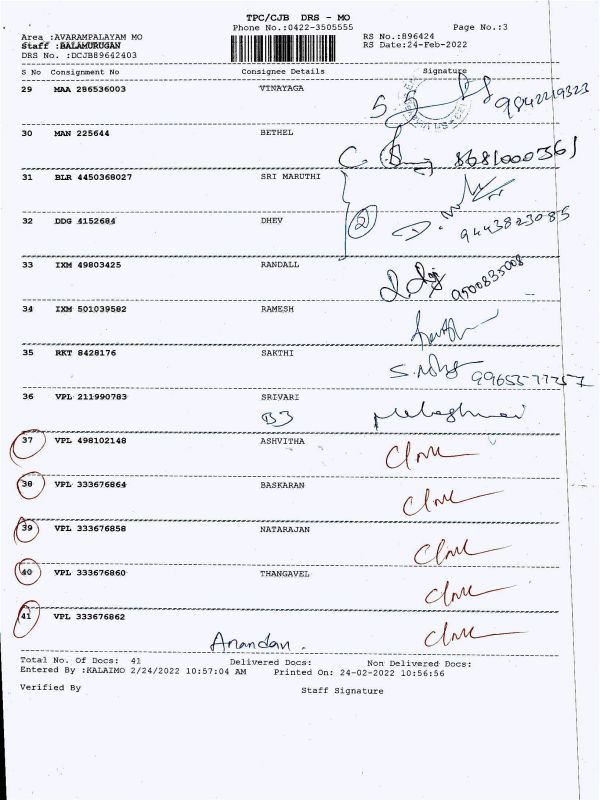 TPC/CJB DRS - MO
Phone No.:0422-3505555 Page No.:3
Area :AVARAMPALAYAM MO RS No.:896424
Staff :BALAMURUGAN RS Date:24-Feb-2022
DRS No. :DCJB89642403
S No Consignment No Consignee Details Signature
29 MAA 286536003 VINAYAGA
9842219323
30 MAN 225644 BETHEL
8681000361
31 BLR 4450368027 SRI MARUTHI
32 DDG 4152684 DHEV
2 9443823085
33 IXM 49803425 RANDALL
9500835008
34 IXM 501039582 RAMESH
35 RKT 8428176 SAKTHI
9965577257
36 VPL 211990783 SRIVARI
B3
37 VPL 498102148 ASHVITHA
38 VPL 333676864 BASKARAN
39 VPL 333676858 NATARAJAN
40 VPL 333676860 THANGAVEL
41 VPL 333676862
Anandan.
Total No. Of Docs: 41 Delivered Docs: Non Delivered Docs:
Entered By :KALAIMO 2/24/2022 10:57:04 AM Printed On: 24-02-2022 10:56:56
Verified By Staff Signature